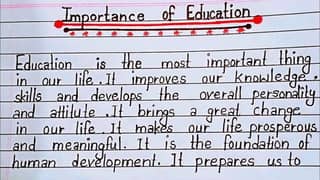 Importance of Education
Education is the most important thing
in our life. It improves our knowledge.
skills and develops the overall personality
and attitute. It brings a great change
in our life. It makes our life prosperous
and meaningful. It is the foundation of
human development. It prepares us to